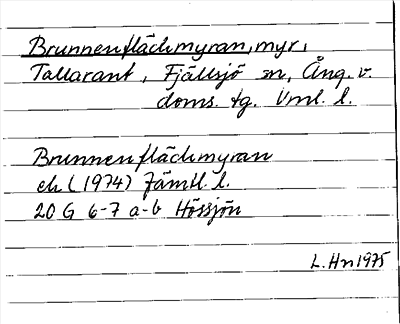 Brunnenfläckmyran, myr,
Tallarant, Fjällsjö sn, Ång. v.
doms. tg. Vml. l.
Brunnenfläckmyran
ek (1974) Jämtl. l.
20 G 6-7 a-b Hössjön
L. Hn 1975